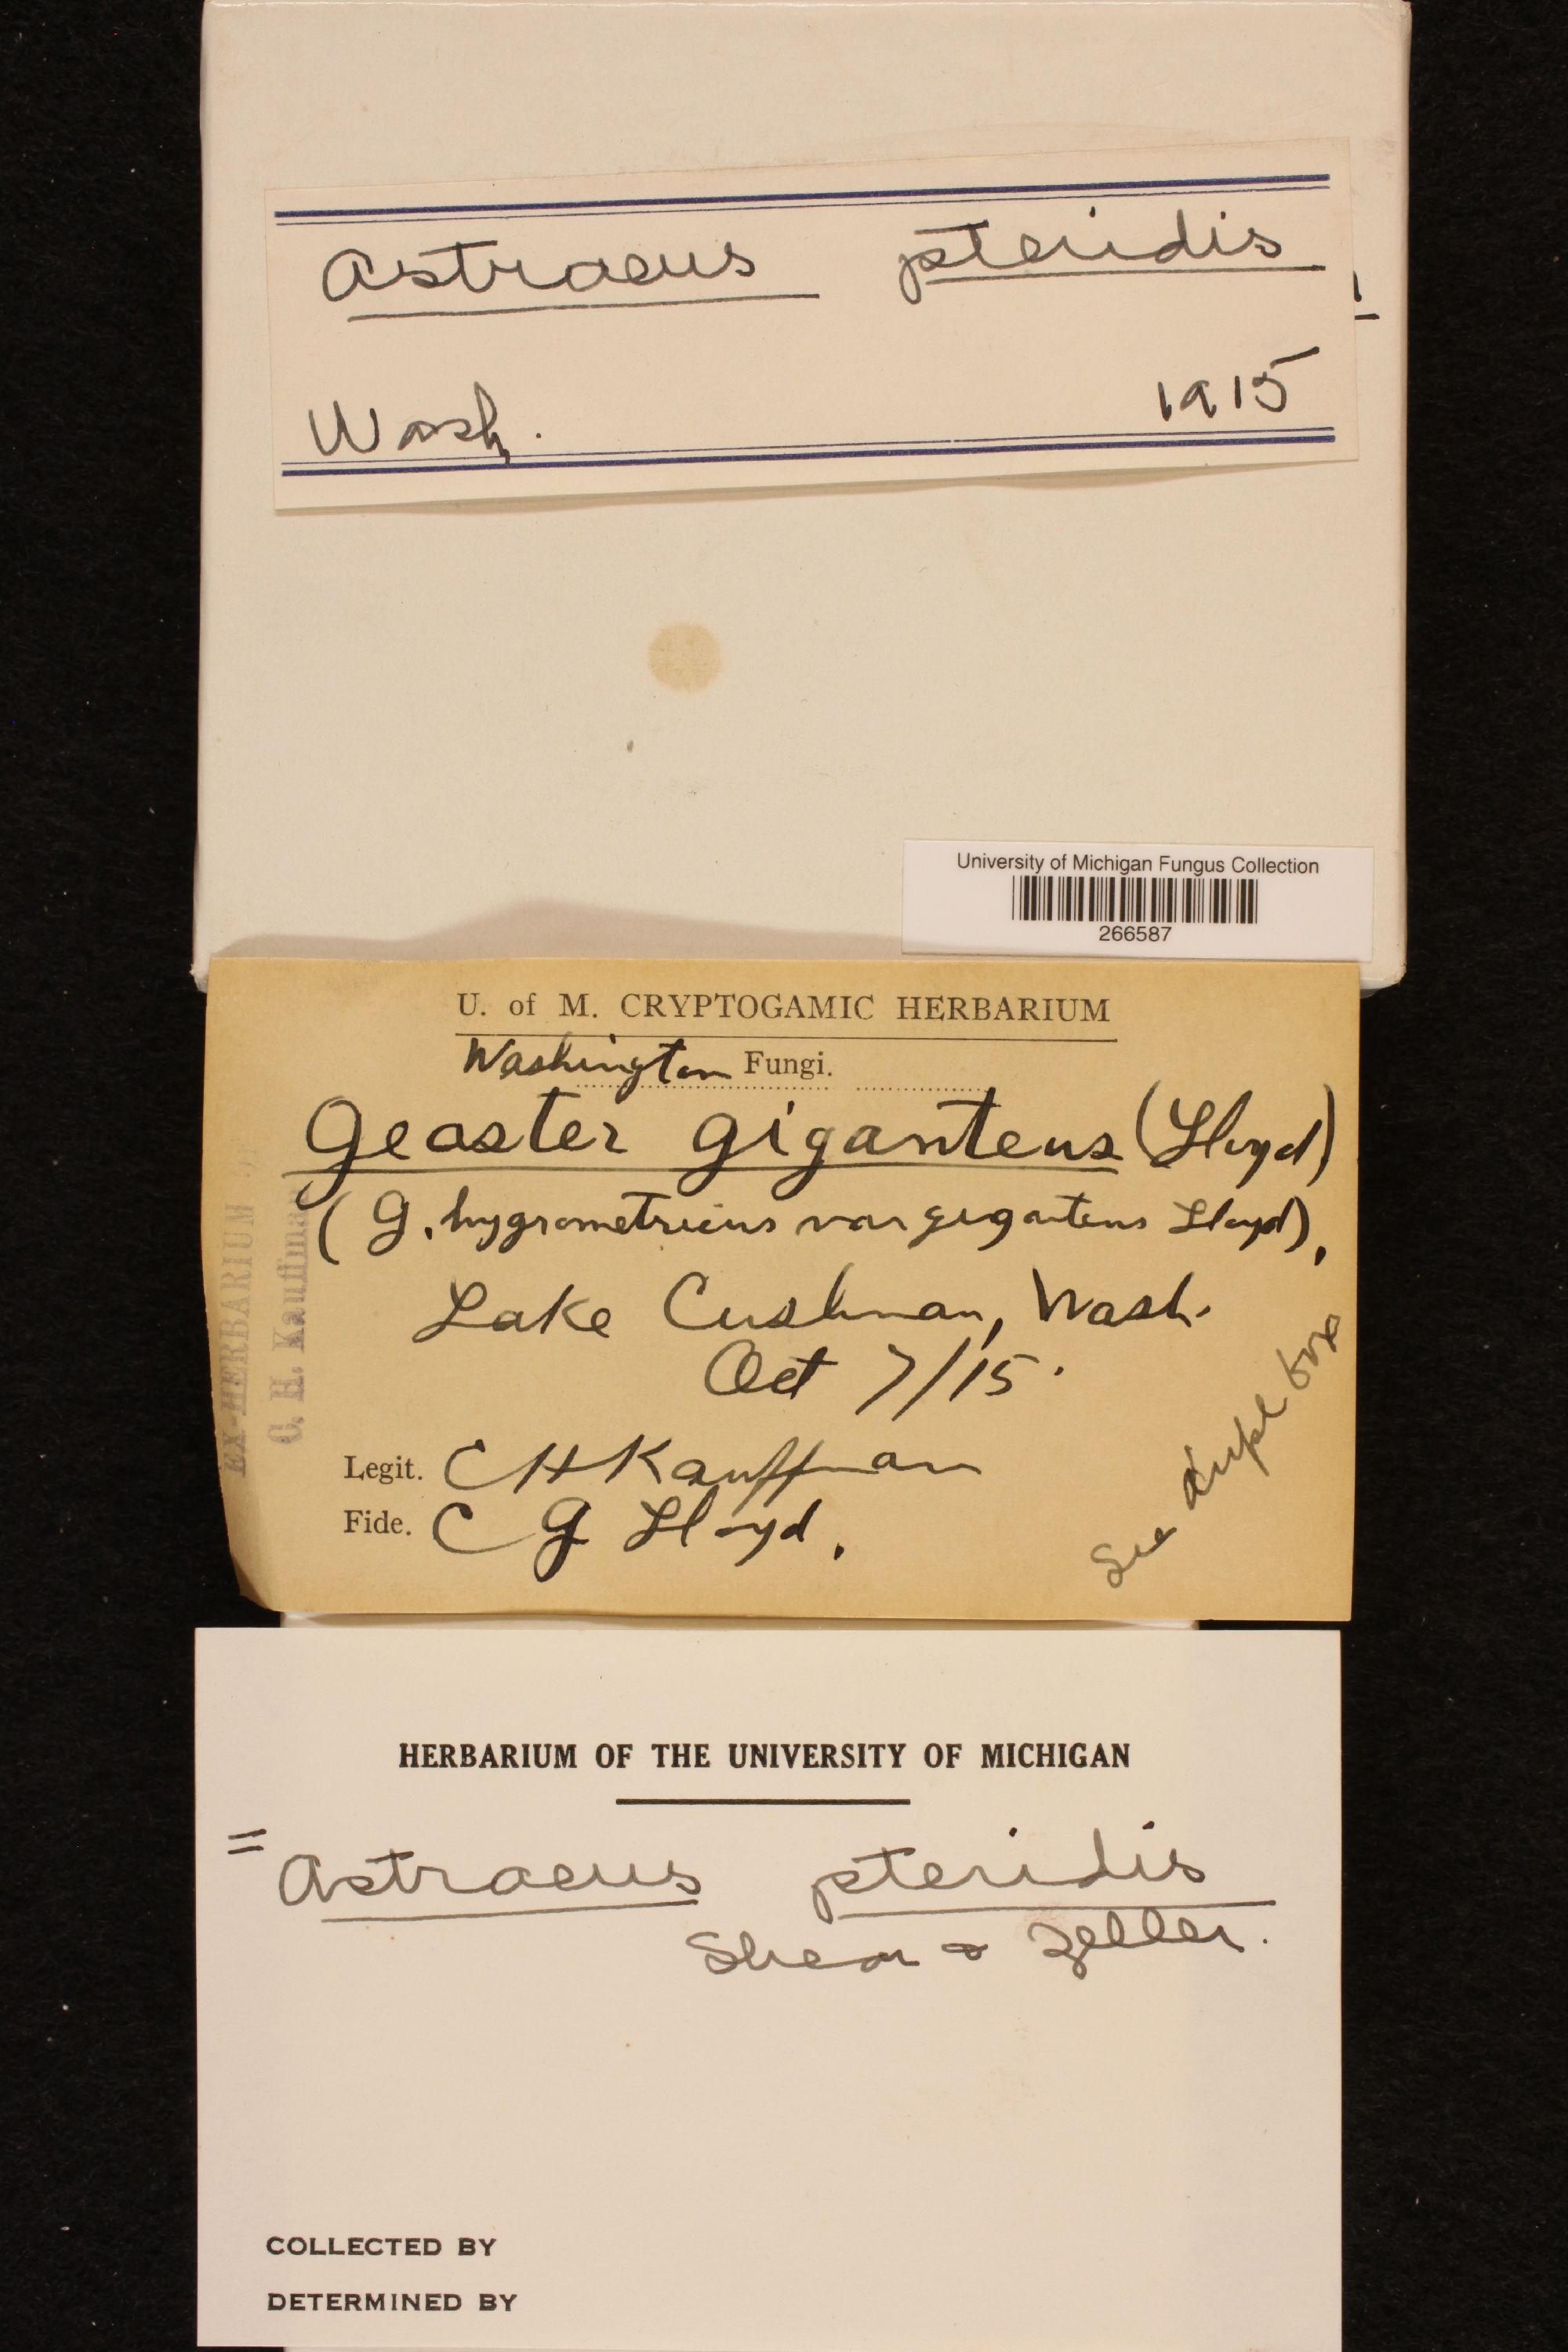 Astraeus pteridis
Wash. 1915
University of Michigan Fungus Collection
266587
U. of M. CRYPTOGAMIC HERBARIUM
Washington Fungi.
Geaster giganteus (Lloyd)
(G. hygrometricus var giganteus Lloyd),
Lake Cushman, Wash.
Oct 7/15.
Legit. C H Kauffman
Fide. C G Lloyd.
See dupl. box
EX-HERBARIUM
C. H. Kauffman
HERBARIUM OF THE UNIVERSITY OF MICHIGAN
= Astraeus pteridis
Shear & Zeller.
COLLECTED BY
DETERMINED BY